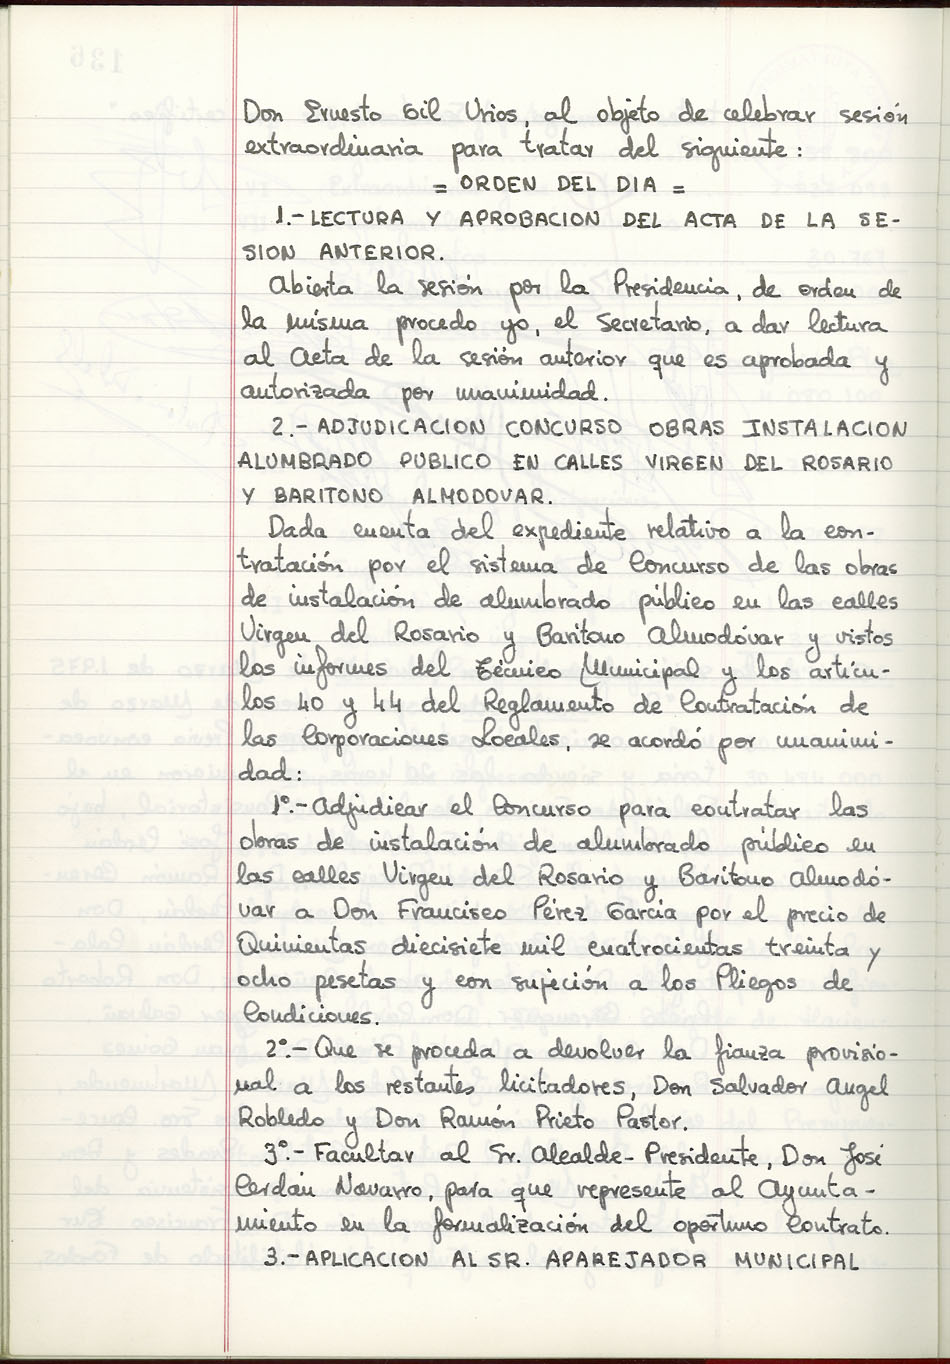 Don Ernesto Gil Urios, al objeto de celebrar sesión
extraordinaria para tratar del siguiente:
= ORDEN DEL DIA =
1.- LECTURA Y APROBACION DEL ACTA DE LA SE-
SION ANTERIOR.
Abierta la sesión por la Presidencia, de orden de
la misma procedo yo, el Secretario, a dar lectura
al Acta de la sesión anterior que es aprobada y
autorizada por unanimidad.
2.- ADJUDICACION CONCURSO OBRAS INSTALACION
ALUMBRADO PUBLICO EN CALLES VIRGEN DEL ROSARIO
Y BARITONO ALMODOVAR.
Dada cuenta del expediente relativo a la con-
tratación por el sistema de Concurso de las obras
de instalación de alumbrado público en las calles
Virgen del Rosario y Barítono Almodóvar y vistos
los informes del Técnico Municipal y los artícu-
los 40 y 44 del Reglamento de Contratación de
las Corporaciones Locales, se acordó por unanimi-
dad:
1º.- Adjudicar el Concurso para contratar las
obras de instalación de alumbrado público en
las calles Virgen del Rosario y Barítono Almodó-
var a Don Francisco Pérez García por el precio de
Quinientas diecisiete mil cuatrocientas treinta y
ocho pesetas y con sujeción a los Pliegos de
Condiciones.
2º.- Que se proceda a devolver la fianza provisio-
nal a los restantes licitadores, Don Salvador Angel
Robledo y Don Ramón Prieto Pastor.
3º.- Facultar al Sr. Alcalde-Presidente, Don José
Cerdán Navarro, para que represente al Ayunta-
miento en la formalización del oportuno Contrato.
3.- APLICACION AL SR. APAREJADOR MUNICIPAL